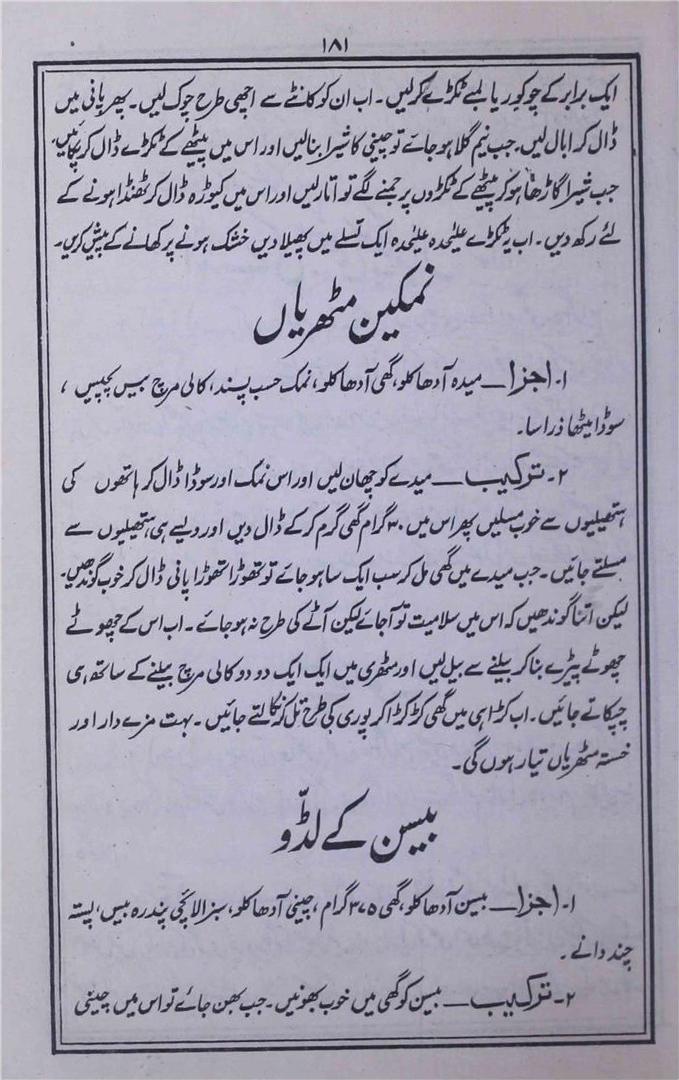 ۱۸۱
ایک برابر کے چوکور یا لمبے ٹکڑے کرلیں۔ اب ان کو کانٹے سے اچھی طرح چوک لیں۔ پھر پانی میں
ڈال کر ابال لیں۔ جب نیم گلا ہو جائے تو چینی کا شیرا بنالیں اور اس میں پیٹھے کے ٹکڑے ڈال کر پکائیں،
جب شیرا گاڑھا ہو کر پیٹھے کے ٹکڑوں پر جمنے لگے تو اتار لیں اور اس میں کیوڑہ ڈال کر ٹھنڈا ہونے کے
لئے رکھ دیں۔ اب یہ ٹکڑے علیٰحدہ علیٰحدہ ایک تسلے میں پھیلا دیں خشک ہونے پر کھانے کے پیش کریں۔
نمکین مٹھریاں
۱۔ اجزا ــ میدہ آدھا کلو، گھی آدھا کلو، نمک حسب پسند، کالی مرچ بیس پچیس،
سوڈا میٹھا ذرا سا۔
۲۔ ترکیب ــ میدے کو چھان لیں اور اس نمک اور سوڈا ڈال کر ہاتھوں کی
ہتھیلیوں سے خوب مسلیں پھر اس میں ۳۰ گرام گھی گرم کر کے ڈال دیں اور ویسے ہی ہتھیلیوں سے
مسلتے جائیں۔ جب میدے میں گھی مل کر سب ایک سا ہو جائے تو تھوڑا تھوڑا پانی ڈال کر خوب گوندھیں۔
لیکن اتنا گوندھیں کہ اس میں سلامیت تو آجائے لیکن آٹے کی طرح نہ ہو جائے۔ اب اس کے چھوٹے
چھوٹے پیڑے بنا کر بیلنے سے بیل لیں اور مٹھری میں ایک ایک دو دو کالی مرچ بیلنے کے ساتھ ہی
چپکاتے جائیں۔ اب کڑاہی میں گھی کڑکڑا کر پوری کی طرح تل کر نکالتے جائیں۔ بہت مزے دار اور
خستہ مٹھریاں تیار ہوں گی۔
بیسن کے لڈّو
۱۔ اجزا ــ بیسن آدھا کلو، گھی ۳۷۵ گرام، چینی آدھا کلو، سبز الائچی پندرہ بیس، پستہ
چند دانے۔
۲۔ ترکیب ــ بیسن کو گھی میں خوب بھونیں۔ جب بھن جائے تو اس میں چینی